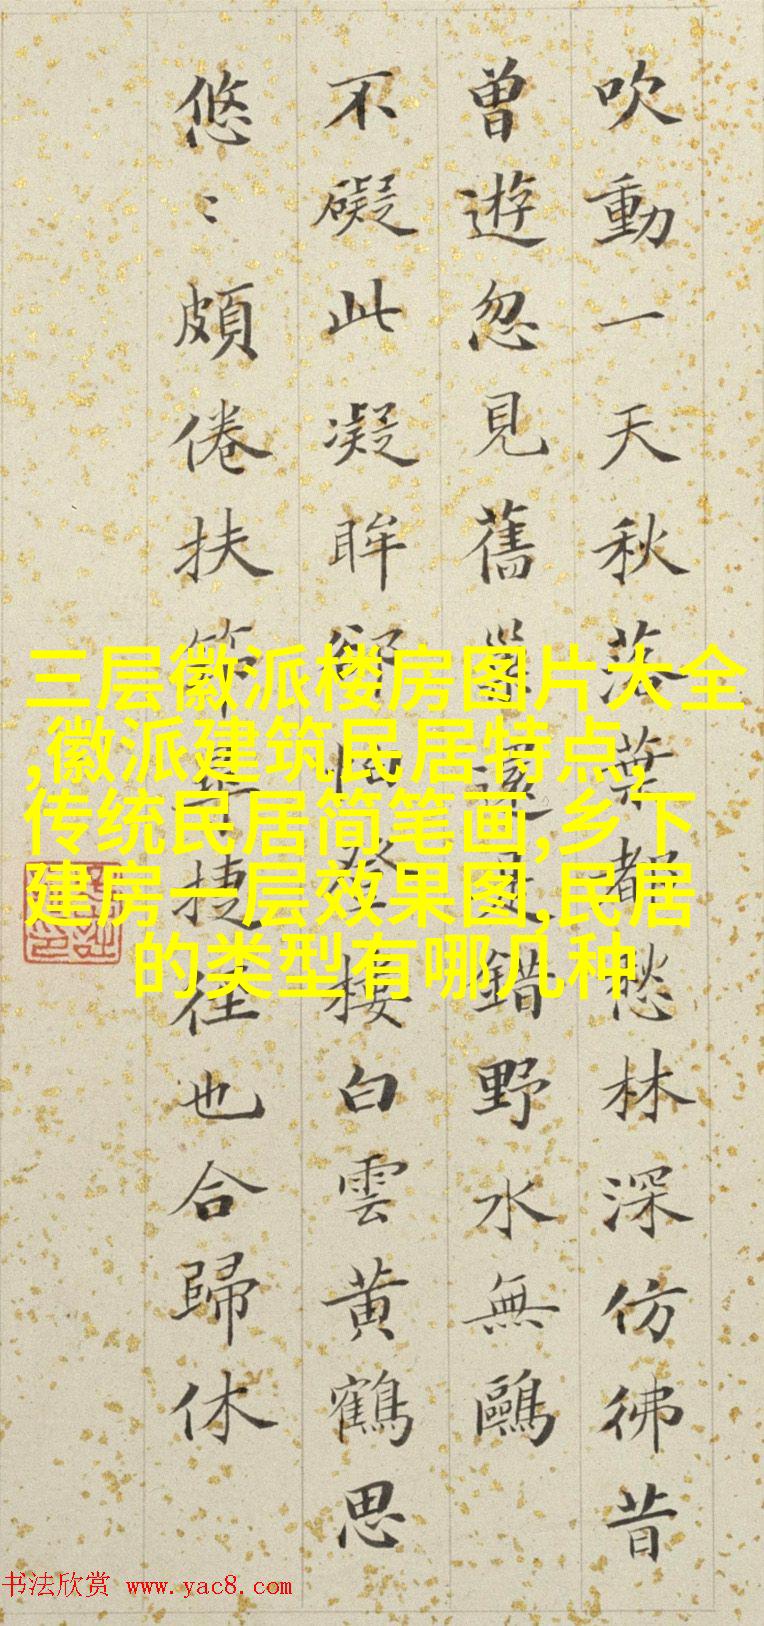 吹動一天秋落葉都愁林深仿彿昔
曾遊忽見舊還是錯野水無鷗
不礙此凝眸卻怕登樓白雲黃鶴思
悠〻頗倦扶筇捷徑也合歸休
三层徽派楼房图片大全
,徽派建筑民居特点,
传统民居简笔画,乡下
建房一层效果图,民居
的类型有哪几种
书法欣赏 www.yac8.com